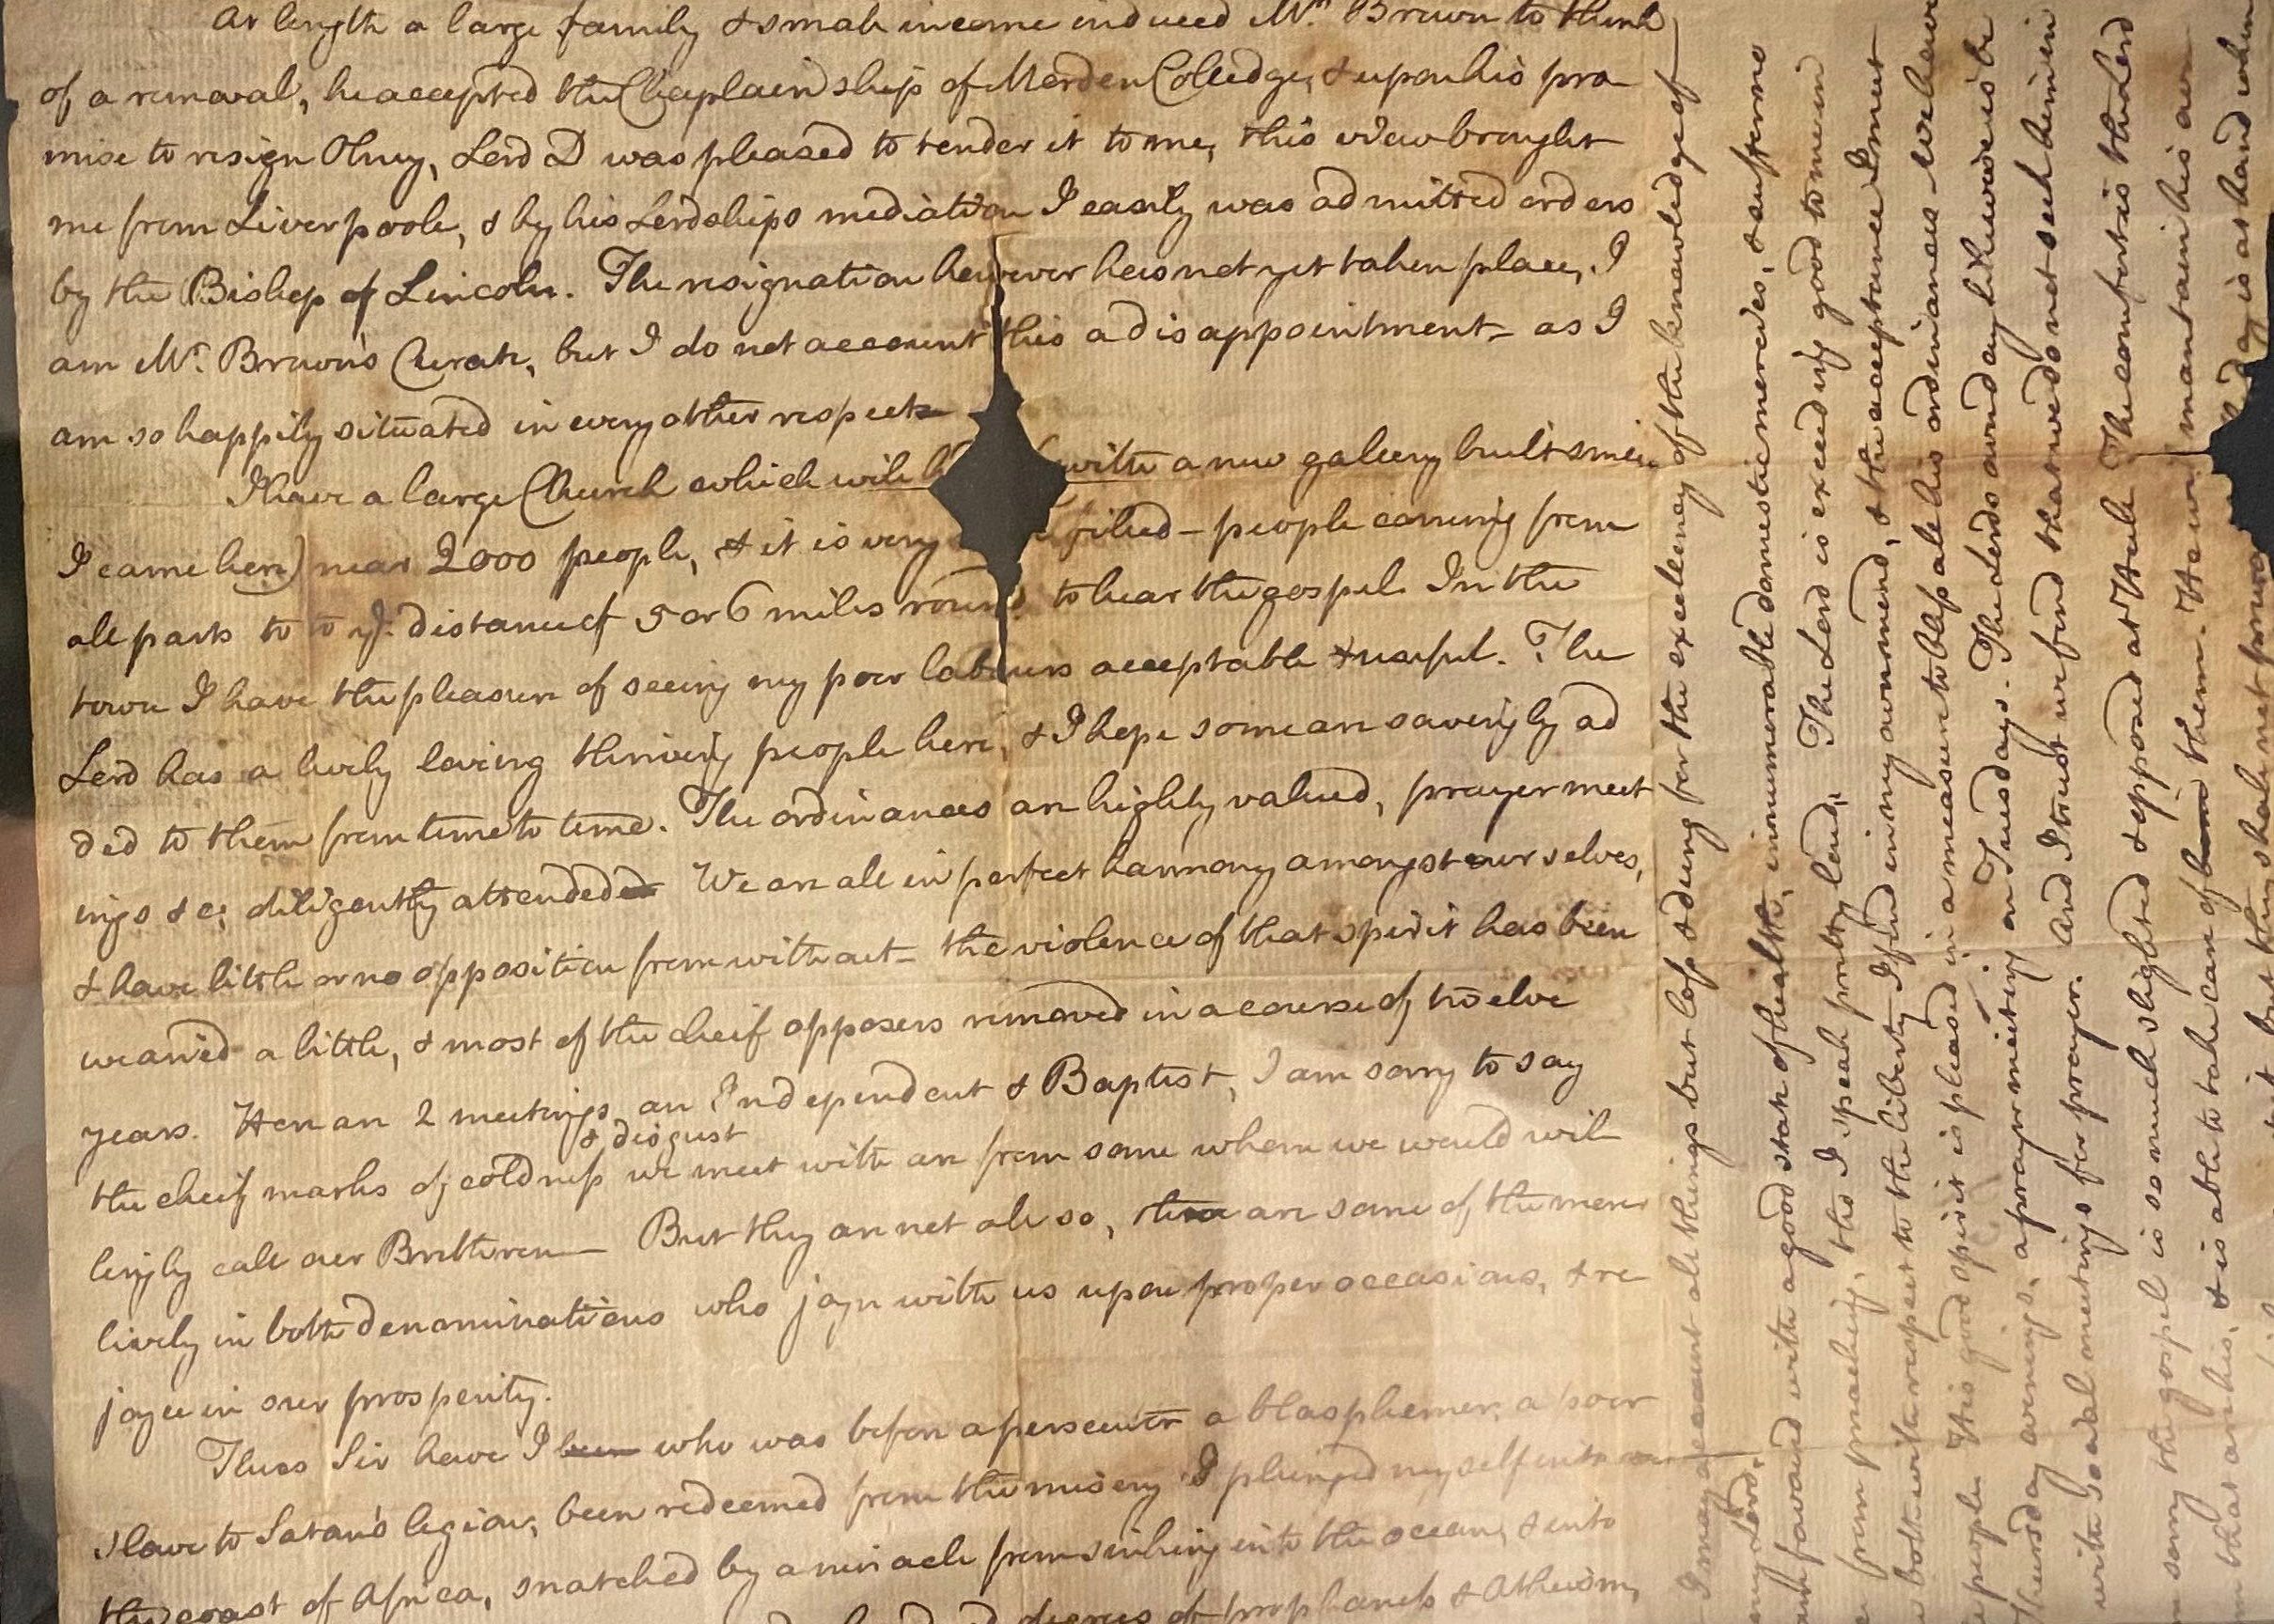 At length a large family & small income induced Mr. Brown to think
of a removal, he accepted the Chaplainship of Morden Colledge, & upon his pro
mise to resign Olney, Lord D was pleased to tender it to me, this view brought
me from Liverpoole, & by his Lordships mediation I easily was admitted orders
by the Bishop of Lincoln. The resignation however has not yet taken place, I
am Mr. Brown's Curate, but I do not account this a disappointment as I
am so happily situated in every other respect
I have a large Church which will with a new gallery built since
I came here) near 2000 people, & it is very filled - people coming from
all parts to to ye. distance of 5 or 6 miles round to hear the gospel. In the
town I have the pleasure of seeing my poor labours acceptable & useful. The
Lord has a lively loving thriving people here, & I hope some are savingly ad
ded to them from time to time. The ordinances are highly valued, prayer meet
ings &c; diligently attended We are all in perfect harmony amongst ourselves,
& have little or no opposition from without - the violence of that spirit has been
wearied a little, & most of the cheif opposers removed in a course of twelve
years. Here are 2 meetings, an Independent & Baptist, I am sorry to say
& disgust
the cheif marks of coldness we meet with are from some whom we would wil
lingly call our Brethren - But they are not all so, there are some of the more
lively in both denominations who joyn with us upon proper occasions, & re
joyce in our prosperity.
Thus Sir have I been who was before a persecutor a blasphemer, a poor
slave to Satan's legion, been redeemed from the misery I plunged myself into on
the coast of Africa, snatched by a miracle from sinking into the ocean, & into
degrees of prophaness & Atheism,
I may account all things but loss & dung for the excellency of the knowledge of
my Lord.
favoured with a good state of health, innumerable domestic mercies, &
from preaching, tho I speak pretty loud. The Lord is exceeding good to me in
both with respect to the liberty I find in my own mind, & the acceptance I meet
people His good spirit is pleased in a measure to bless all his ordinances. We have
Thursday evenings, a prayer meeting on Tuesdays. The Lords awnd day likewise is be
with social meetings for prayer. And I trust we find that we do not seek him in
sorry the gospel is so much slighted & opposed at Hull The comfort is the Lord
& is able to take care of them. He will mantain his own
that are his, day is at hand when
but they shall not